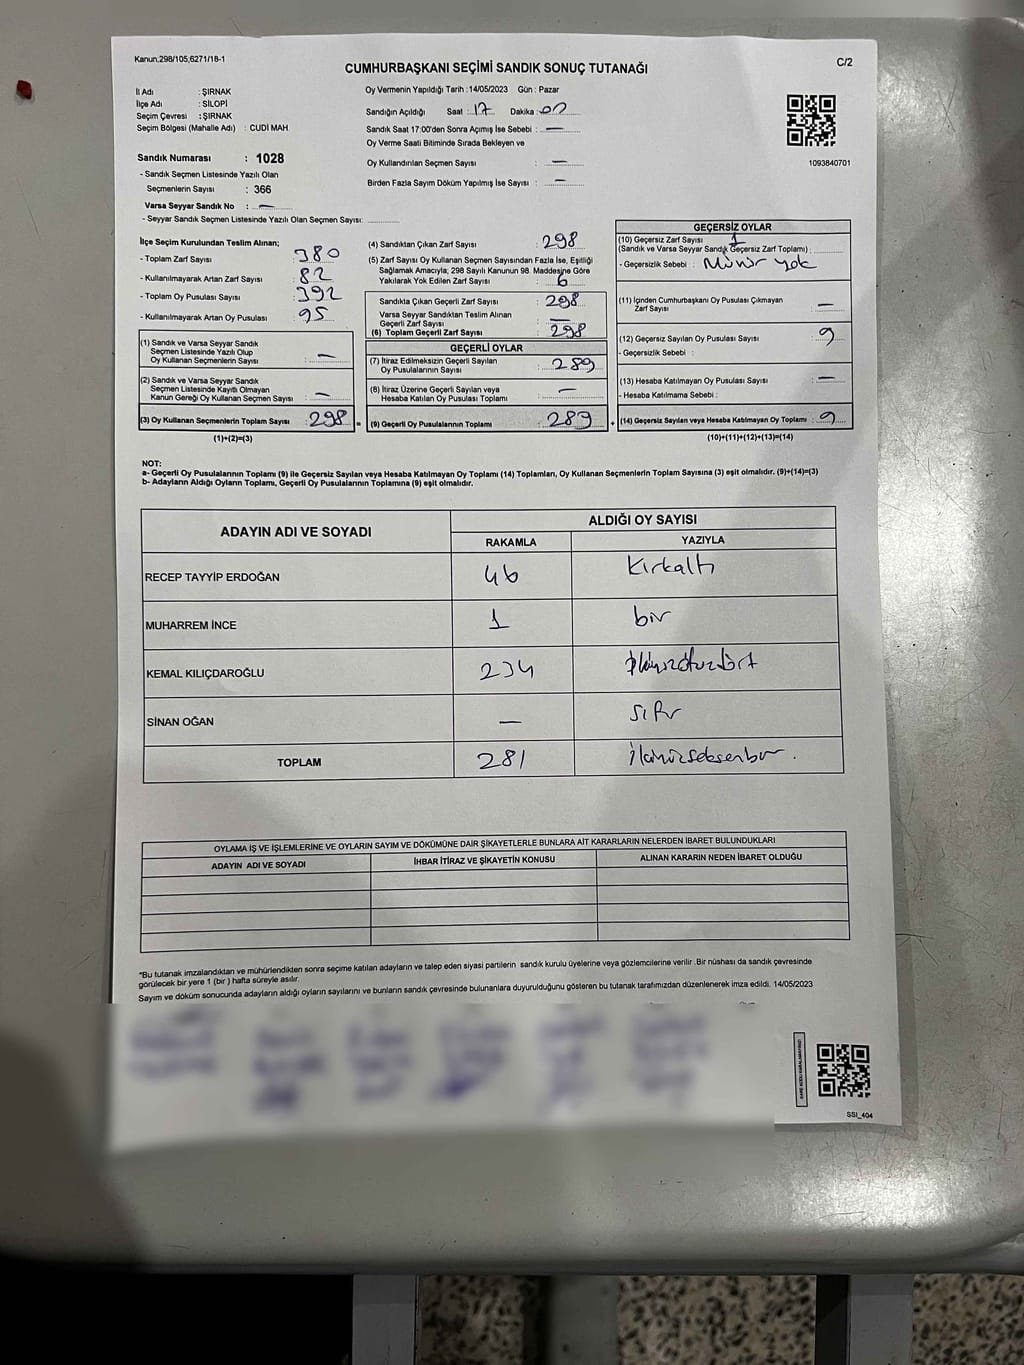 Kanun;298/105,6271/18-1
C/2
CUMHURBAŞKANI SEÇİMİ SANDIK SONUÇ TUTANAĞI
İl Adı : ŞIRNAK
İlçe Adı : SİLOPİ
Seçim Çevresi : ŞIRNAK
Seçim Bölgesi (Mahalle Adı) : CUDİ MAH.
Oy Vermenin Yapıldığı Tarih :14/05/2023 Gün : Pazar
Sandığın Açıldığı Saat : 17 Dakika : 00
Sandık Saat 17:00'den Sonra Açımış İse Sebebi : —
Oy Verme Saati Bitiminde Sırada Bekleyen ve
Oy Kullandırılan Seçmen Sayısı : —
Birden Fazla Sayım Döküm Yapılmış İse Sayısı : —
1093840701
Sandık Numarası : 1028
- Sandık Seçmen Listesinde Yazılı Olan
Seçmenlerin Sayısı : 366
Varsa Seyyar Sandık No : —
- Seyyar Sandık Seçmen Listesinde Yazılı Olan Seçmen Sayısı:
İlçe Seçim Kurulundan Teslim Alınan;
- Toplam Zarf Sayısı : 380
- Kullanılmayarak Artan Zarf Sayısı : 82
- Toplam Oy Pusulası Sayısı : 392
- Kullanılmayarak Artan Oy Pusulası : 95
(1) Sandık ve Varsa Seyyar Sandık
Seçmen Listesinde Yazılı Olup
Oy Kullanan Seçmenlerin Sayısı : —
(2) Sandık ve Varsa Seyyar Sandık
Seçmen Listesinde Kayıtlı Olmayan
Kanun Gereği Oy Kullanan Seçmen Sayısı : —
(3) Oy Kullanan Seçmenlerin Toplam Sayısı : 298
(1)+(2)=(3)
(4) Sandıktan Çıkan Zarf Sayısı : 298
(5) Zarf Sayısı Oy Kullanan Seçmen Sayısından Fazla İse, Eşitliği
Sağlamak Amacıyla; 298 Sayılı Kanunun 98. Maddesine Göre
Yakılarak Yok Edilen Zarf Sayısı : 6
Sandıkta Çıkan Geçerli Zarf Sayısı : 298
Varsa Seyyar Sandıktan Teslim Alınan
Geçerli Zarf Sayısı : —
(6) Toplam Geçerli Zarf Sayısı : 298
GEÇERLİ OYLAR
(7) İtiraz Edilmeksizin Geçerli Sayılan
Oy Pusulalarının Sayısı : 289
(8) İtiraz Üzerine Geçerli Sayılan veya
Hesaba Katılan Oy Pusulası Toplamı : —
= (9) Geçerli Oy Pusulalarının Toplamı : 289
GEÇERSİZ OYLAR
(10) Geçersiz Zarf Sayısı 1
(Sandık ve Varsa Seyyar Sandık Geçersiz Zarf Toplamı) :
- Geçersizlik Sebebi : Mühür yok
(11) İçinden Cumhurbaşkanı Oy Pusulası Çıkmayan
Zarf Sayısı : —
(12) Geçersiz Sayılan Oy Pusulası Sayısı : 9
- Geçersizlik Sebebi :
(13) Hesaba Katılmayan Oy Pusulası Sayısı : —
- Hesaba Katılmama Sebebi :
+ (14) Geçersiz Sayılan veya Hesaba Katılmayan Oy Toplamı : 9
(10)+(11)+(12)+(13)=(14)
NOT:
a- Geçerli Oy Pusulalarının Toplamı (9) ile Geçersiz Sayılan veya Hesaba Katılmayan Oy Toplamı (14) Toplamları, Oy Kullanan Seçmenlerin Toplam Sayısına (3) eşit olmalıdır. (9)+(14)=(3)
b- Adayların Aldığı Oyların Toplamı, Geçerli Oy Pusulalarının Toplamına (9) eşit olmalıdır.
ADAYIN ADI VE SOYADI
ALDIĞI OY SAYISI
RAKAMLA YAZIYLA
RECEP TAYYİP ERDOĞAN 46 Kırkaltı
MUHARREM İNCE 1 bir
KEMAL KILIÇDAROĞLU 234 ikiyüzotuzdört
SİNAN OĞAN — Sıfır
TOPLAM 281 ikiyüzseksenbir.
OYLAMA İŞ VE İŞLEMLERİNE VE OYLARIN SAYIM VE DÖKÜMÜNE DAİR ŞİKAYETLERLE BUNLARA AİT KARARLARIN NELERDEN İBARET BULUNDUKLARI
ADAYIN ADI VE SOYADI
İHBAR İTİRAZ VE ŞİKAYETİN KONUSU
ALINAN KARARIN NEDEN İBARET OLDUĞU
*Bu tutanak imzalandıktan ve mühürlendikten sonra seçime katılan adayların ve talep eden siyasi partilerin sandık kurulu üyelerine veya gözlemcilerine verilir .Bir nüshası da sandık çevresinde
görülecek bir yere 1 (bir ) hafta süreyle asılır.
Sayım ve döküm sonucunda adayların aldığı oyların sayılarını ve bunların sandık çevresinde bulunanlara duyurulduğunu gösteren bu tutanak tarafımızdan düzenlenerek imza edildi. 14/05/2023
SSI_404